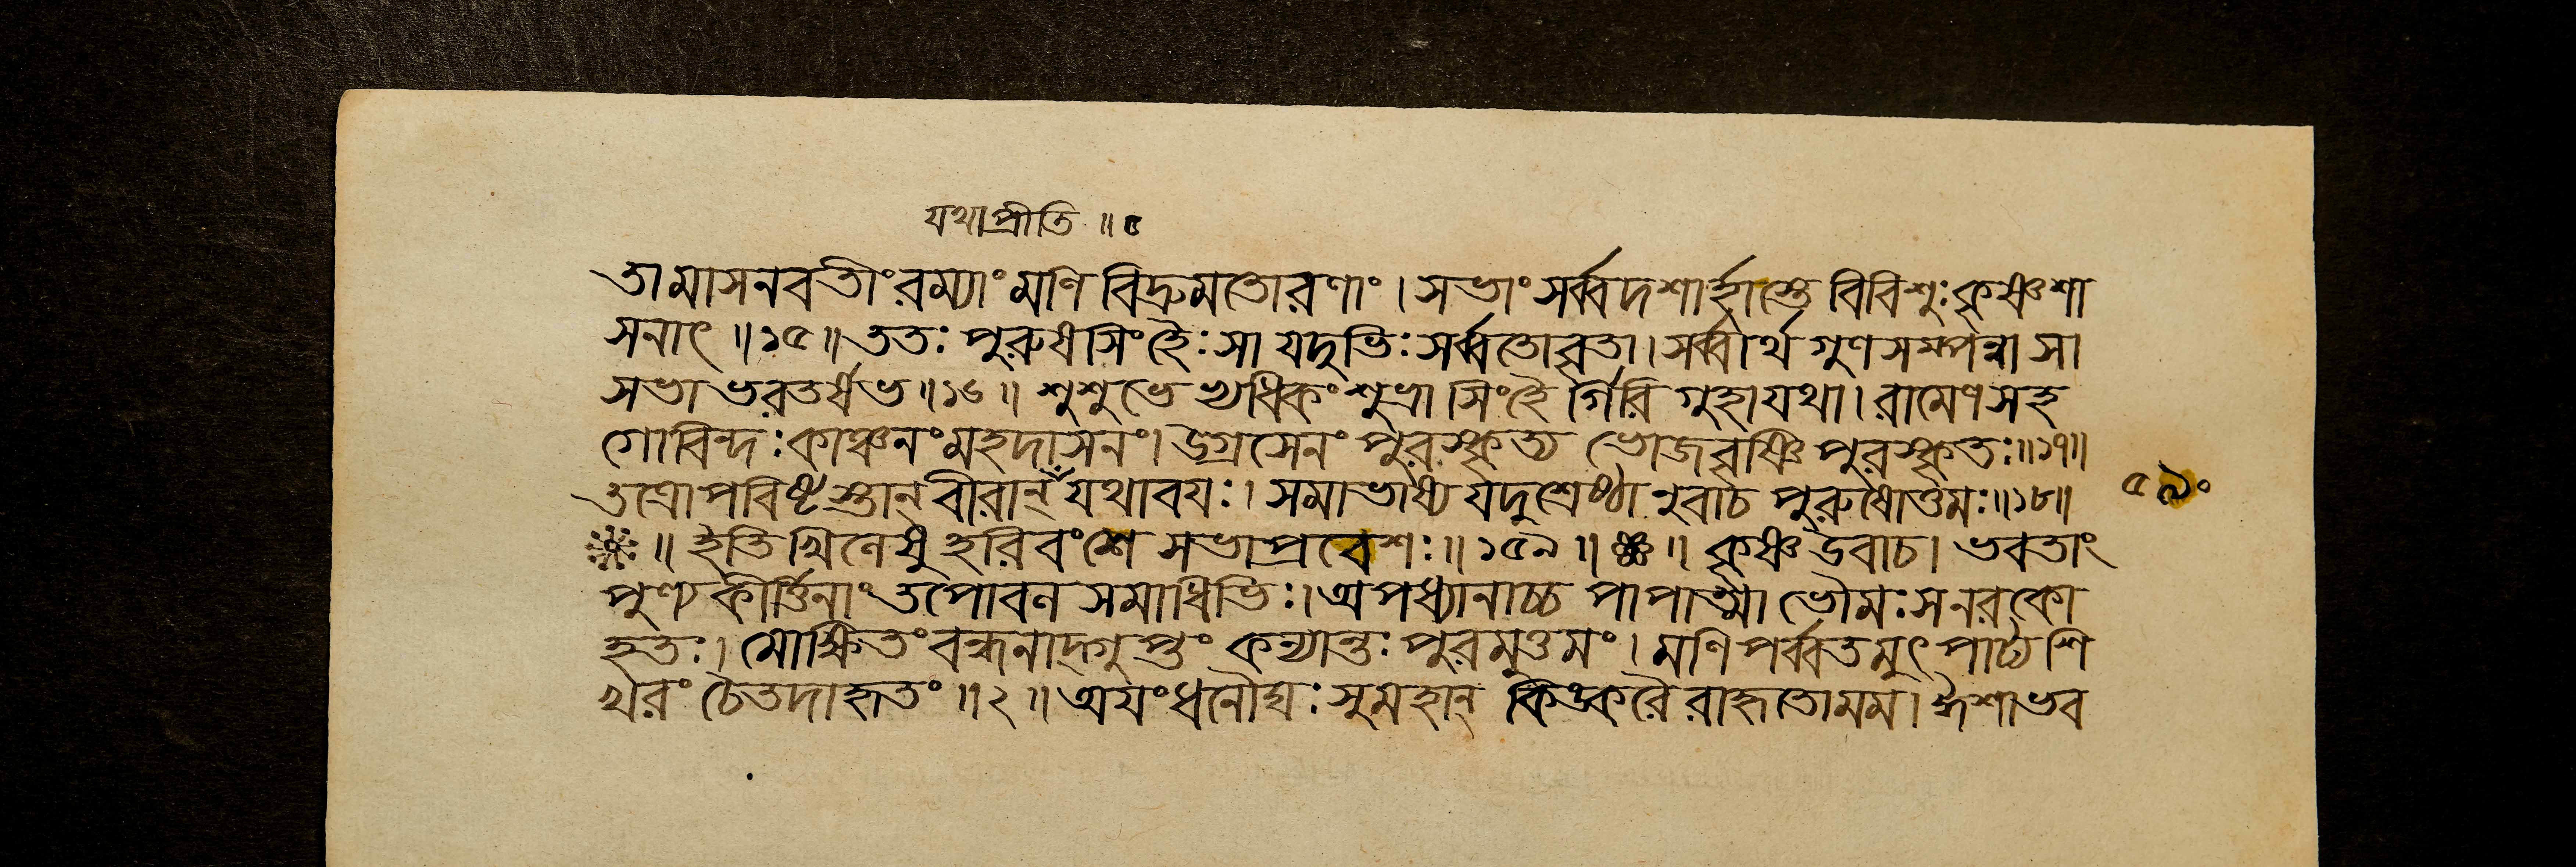 যথাপ্রীতি ॥ ৫
তামাসনবতীং রম্যাং মণিবিদ্রুমতোরণাং । সভাং সর্ব্বদশার্হাস্তে বিবিশুঃ কৃষ্ণশা
সনাৎ ॥ ১৫ ॥ ততঃ পুরুষসিংহৈঃ সা যদুভিঃ সর্ব্বতোবৃতা । সর্ব্বার্থগুণসম্পন্না সা
সভা ভরতর্ষভ ॥ ১৬ ॥ শুশুভে ধিকং শুভ্রা সিংহৈর্গিরিগুহা যথা । রামেণ সহ
গোবিন্দঃ কাঞ্চনং মহদাসনং । উগ্রসেনং পুরস্কৃত্য ভোজবৃষ্ণিপুরস্কৃতঃ ॥ ১৭ ॥
তত্রোপবিষ্টাস্তান্ বীরান্ যথাবয়ঃ । সমাভাষ্য যদুশ্রেষ্ঠানুবাচ পুরুষোত্তমঃ ॥ ১৮ ॥
॥ ইতি খিলেষু হরিবংশে সভাপ্রবেশঃ ॥ ১৫৯ ॥ ॥ কৃষ্ণ উবাচ । ভবতাং
পুণ্যকীর্ত্তিনাং তপোবন সমাধিভিঃ । অপধ্যানাচ্চ পাপাত্মা ভৌমঃ সনরকো
হতঃ । মোক্ষিতং বন্ধনাদ্গুপ্তং কন্যান্তঃপুরমুত্তমং । মণিপর্ব্বতমুৎপাট্য শি
খরং চৈতদাহৃতং ॥ ২ ॥ অয়ং ধনৌঘঃ সুমহান্ কিঙ্করৈরাহৃতো মম । ঈশা ভব